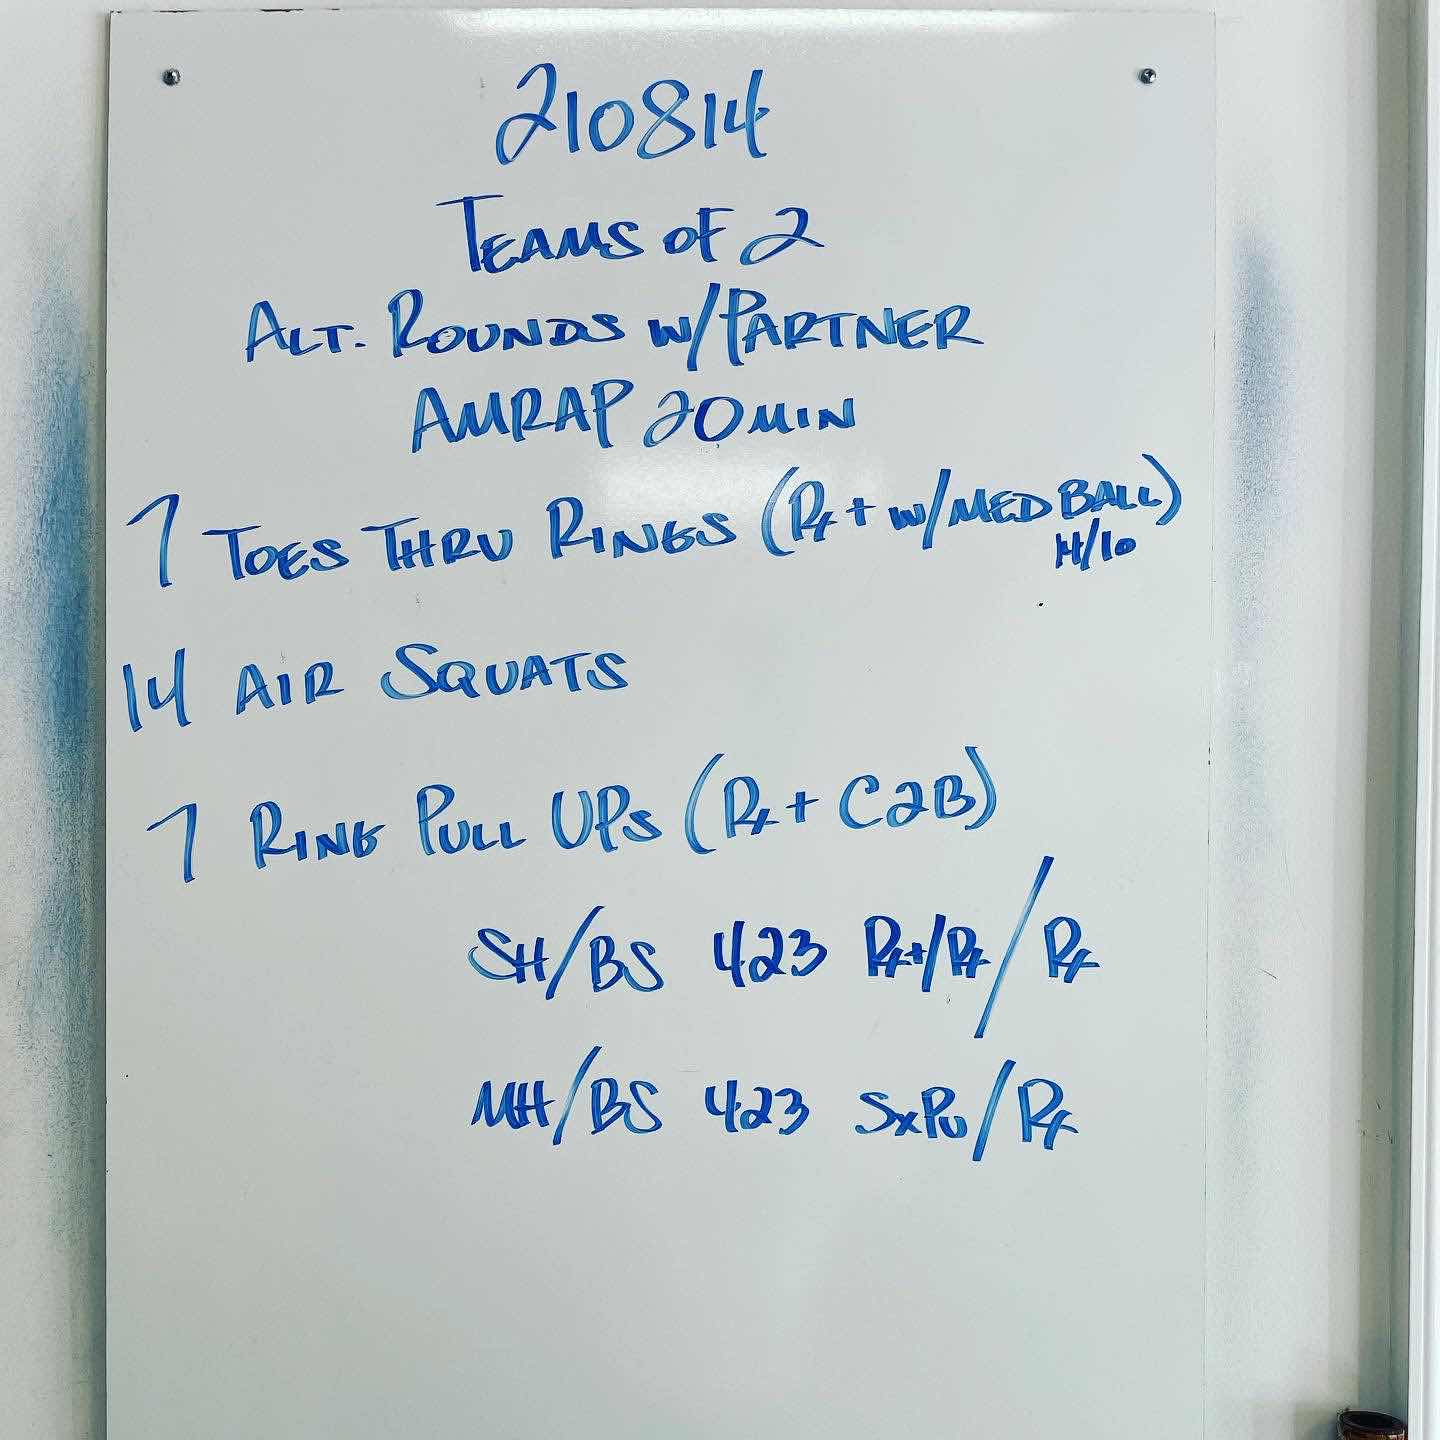 210814
TEAMS OF 2
ALT. ROUNDS W/PARTNER
AMRAP 20 MIN
7 TOES THRU RINGS (Rx+ W/MED BALL)
14/10
14 AIR SQUATS
7 RING PULL UPS (Rx+ C2B)
SH/BS 423 Rx+/Rx/Rx
MH/BS 423 SxPU/Rx